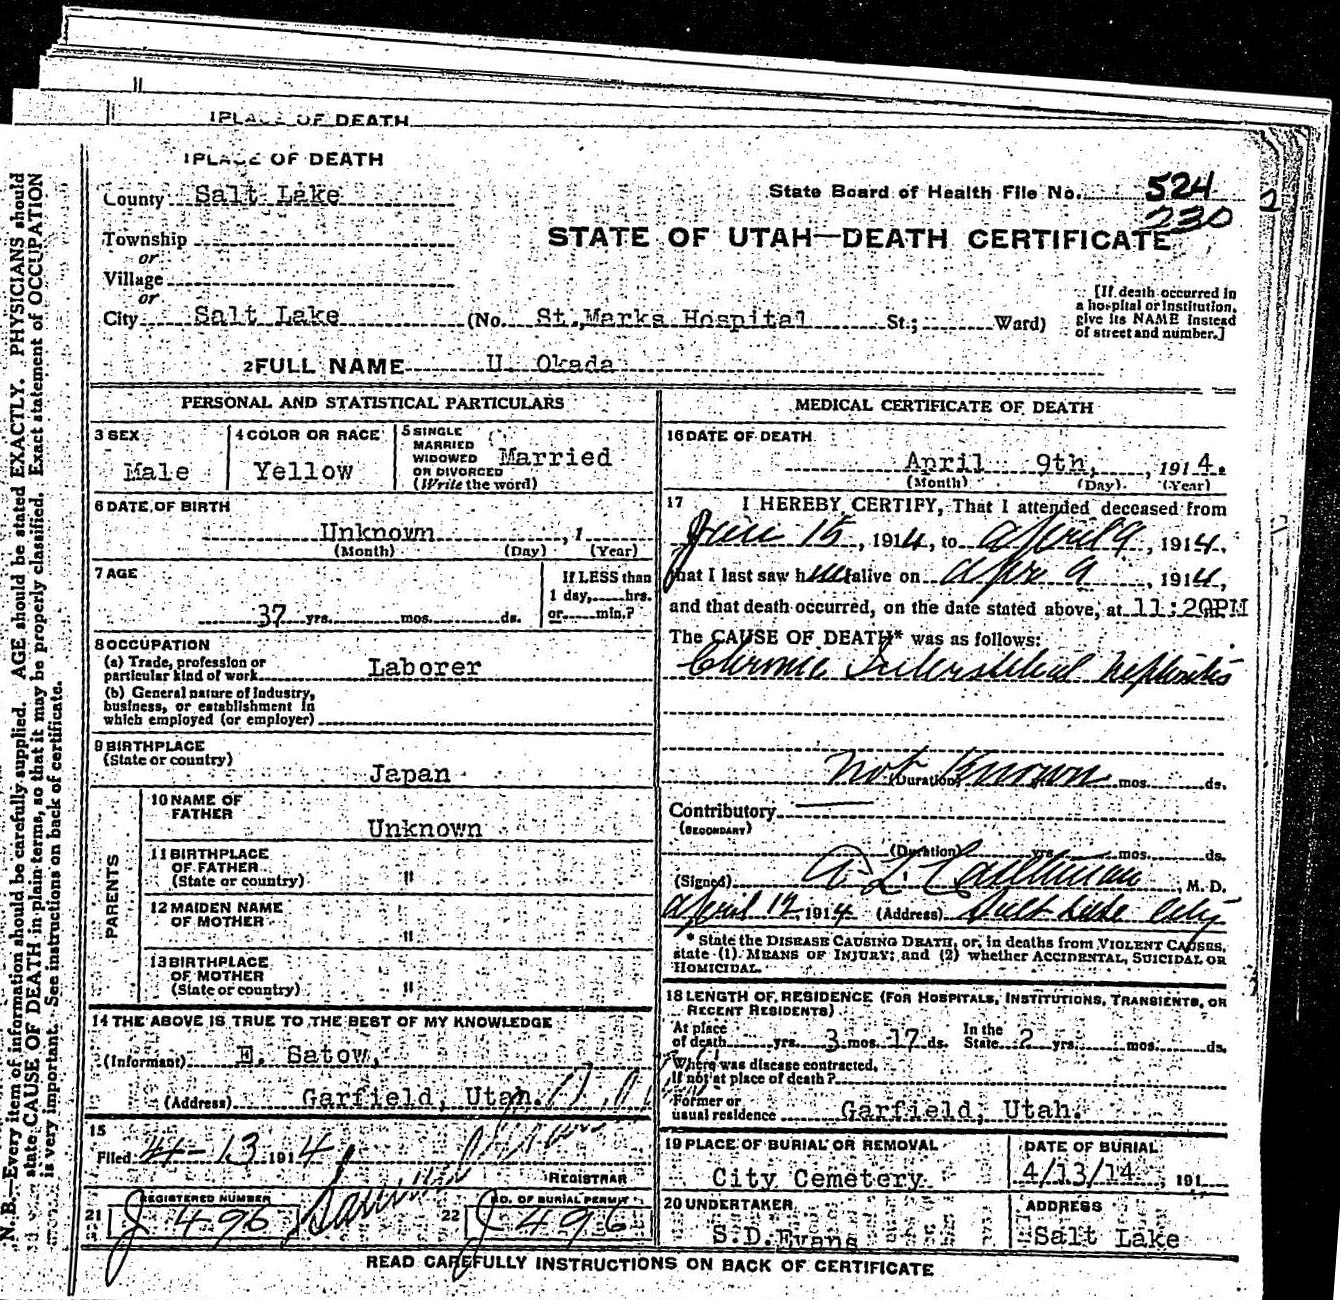 1 PLACE OF DEATH
1 PLACE OF DEATH
County Salt Lake
State Board of Health File No. 524
230
Township
or
STATE OF UTAH—DEATH CERTIFICATE
Village
or
City Salt Lake (No. St. Marks Hospital St.; Ward)
[If death occurred in
a hospital or institution,
give its NAME instead
of street and number.]
2 FULL NAME U. Okada
PERSONAL AND STATISTICAL PARTICULARS
3 SEX
Male
4 COLOR OR RACE
Yellow
5 SINGLE
MARRIED
WIDOWED
OR DIVORCED
(Write the word)
Married
6 DATE OF BIRTH
Unknown , 1
(Month) (Day) (Year)
7 AGE
37 yrs. mos. ds.
If LESS than
1 day, hrs.
or min.?
8 OCCUPATION
(a) Trade, profession or
particular kind of work Laborer
(b) General nature of industry,
business, or establishment in
which employed (or employer)
9 BIRTHPLACE
(State or country)
Japan
PARENTS
10 NAME OF
FATHER
Unknown
11 BIRTHPLACE
OF FATHER
(State or country) "
12 MAIDEN NAME
OF MOTHER
"
13 BIRTHPLACE
OF MOTHER
(State or country) "
14 THE ABOVE IS TRUE TO THE BEST OF MY KNOWLEDGE
(Informant) E. Satow,
(Address) Garfield, Utah.
15
Filed 4-13 1914
REGISTRAR
REGISTERED NUMBER
21 J 496
NO. OF BURIAL PERMIT
22 J 496
MEDICAL CERTIFICATE OF DEATH
16 DATE OF DEATH
April 9th, , 1914.
(Month) (Day) (Year)
17 I HEREBY CERTIFY, That I attended deceased from
15, 1914, to April 9, 1914,
that I last saw him alive on Apr 9, 1914,
and that death occurred, on the date stated above, at 11:20PM
The CAUSE OF DEATH* was as follows:
Chronic Interstitial Nephritis
Not Known
(Duration) mos. ds.
Contributory
(SECONDARY)
(Duration) yrs. mos. ds.
(Signed) , M. D.
April 12 1914 (Address) Salt Lake City
* State the DISEASE CAUSING DEATH, or, in deaths from VIOLENT CAUSES,
state (1) MEANS OF INJURY; and (2) whether ACCIDENTAL, SUICIDAL OR
HOMICIDAL.
18 LENGTH OF RESIDENCE (FOR HOSPITALS, INSTITUTIONS, TRANSIENTS, OR
RECENT RESIDENTS)
At place
of death yrs. 3 mos. 17 ds.
In the
State 2 yrs. mos. ds.
Where was disease contracted,
If not at place of death?
Former or
usual residence Garfield, Utah.
19 PLACE OF BURIAL OR REMOVAL
City Cemetery
DATE OF BURIAL
4/13/14 , 191
20 UNDERTAKER
S.D.Evans
ADDRESS
Salt Lake
READ CAREFULLY INSTRUCTIONS ON BACK OF CERTIFICATE
N. B.—Every item of information should be carefully supplied. AGE should be stated EXACTLY. PHYSICIANS should
state CAUSE OF DEATH in plain terms, so that it may be properly classified. Exact statement of OCCUPATION
is very important. See instructions on back of certificate.